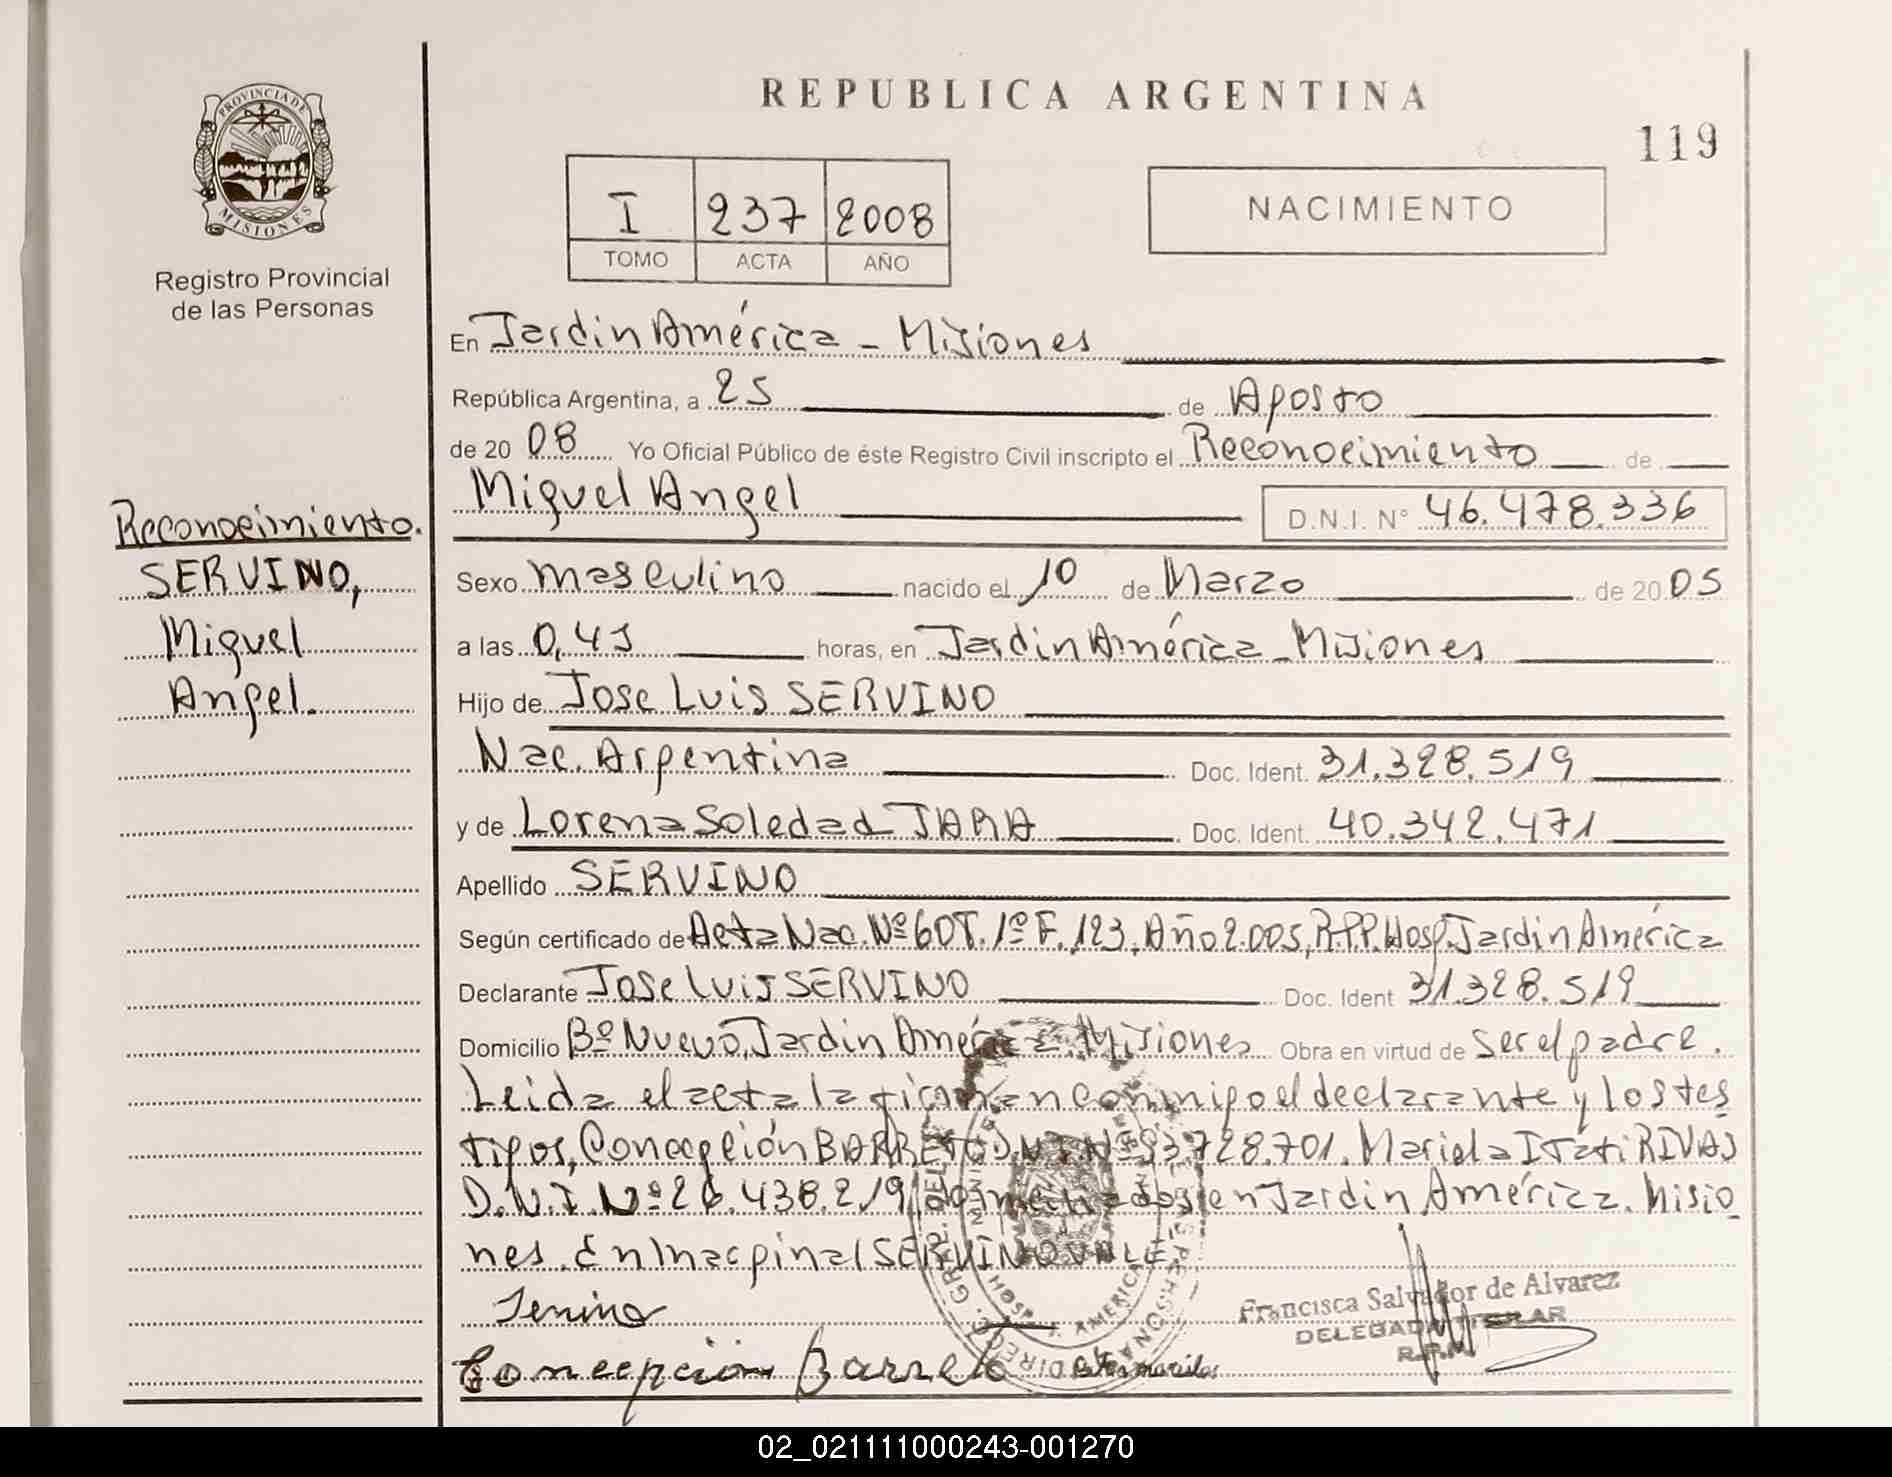 REPUBLICA ARGENTINA
119
PROVINCIA DE
MISIONES
Registro Provincial
de las Personas
I 237 2008
TOMO ACTA AÑO
NACIMIENTO
En Jardin América - Misiones
República Argentina, a 25 de Agosto
de 20 08 Yo Oficial Público de éste Registro Civil inscripto el Reconocimiento de
Miguel Angel D.N.I. N° 46.478.336
Reconocimiento.
SERVINO,
Miguel
Angel.
Sexo masculino nacido el 10 de Marzo de 20 05
a las 0,45 horas, en Jardin América - Misiones
Hijo de Jose Luis SERVINO
Nac. Argentina Doc. Ident. 31.328.519
y de Lorena Soledad JARA Doc. Ident. 40.342.471
Apellido SERVINO
Según certificado de Acta Nac. Nº 60 T. 1º F. 123, Año 2.005, R.P.P. Hosp. Jardin América
Declarante Jose Luis SERVINO Doc. Ident 31.328.519
Domicilio Bº Nuevo, Jardin América. Misiones Obra en virtud de ser el padre.
Leida el acta la firman conmigo el declarante y los tes
tigos, Concepción BARRETO D.N.I. Nº 93728.701. Mariela Itati RIVAS
D.N.I. Nº 26.438.219, domiciliados en Jardin América. Misio
nes. En marginal SERVINO VALE
Concepcion Barreto
Francisca Salvador de Alvarez
DELEGADA TITULAR
R.P.P.
02_021111000243-001270